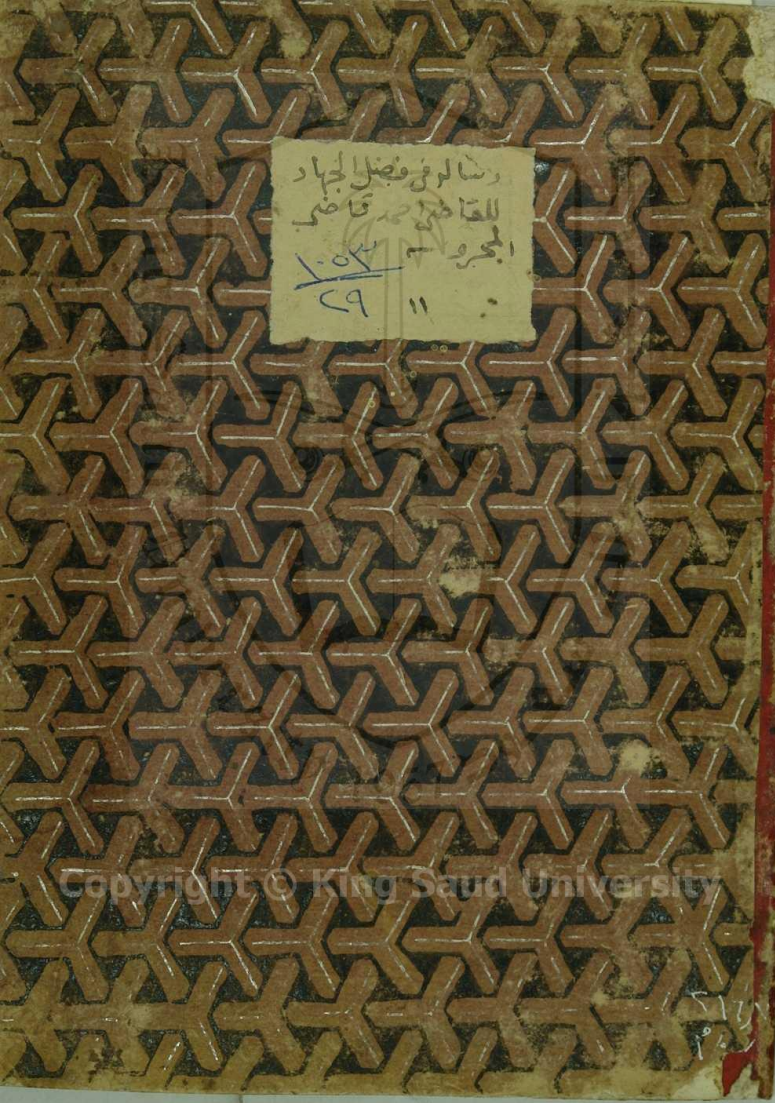 رسالة في فضل الجهاد
للقاضي احمد قاضي
١٠٥٣
٢٩
١١
Copyright © King Saud University